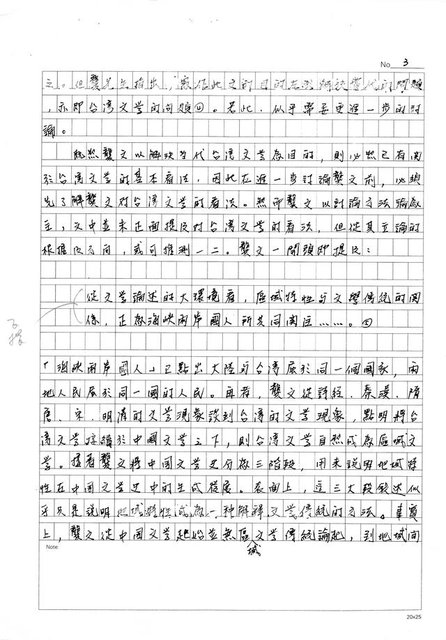 No 3
之。但龔先生指出,寫作此文的目的在於解決當代的問題
,亦即台灣文學的問題⑪。若此,似乎需要更進一步的討
論。
既然龔文以解決當代台灣文學為目的,則必然已有關
於台灣文學的基本看法,因此在進一步討論龔文前,必須
先了解龔文對台灣文學的看法。然而龔文以討論方法論為
主,文中並未正面提及對台灣文學的看法,但從其立論的
根據及方向,或可推測一二。龔文一開頭即提及:
從文學論述的大環境看,區域特性與文學傳統的關
係,正為海峽兩岸國人所共同關區……。④
「海峽兩岸國人」已點出大陸與台灣屬於同一個國家,兩
地人民屬於同一國的人民。再者,龔文從詩經、秦漢、隋
唐、宋、明清的文學現象談到台灣的文學現象,點明將台
灣文學接續於中國文學之下,則台灣文學自然成為區域文
學。接著龔文將中國文學史分為三階段,用來說明地域特
性在中國文學史中的生成發展。表面上,這三大段敘述似
乎只是說明地域特性成為一種解釋文學傳統的方法。事實
上,龔文從中國文學起始並無區域文學傳統論起,到地域問
不接
Note
20x25